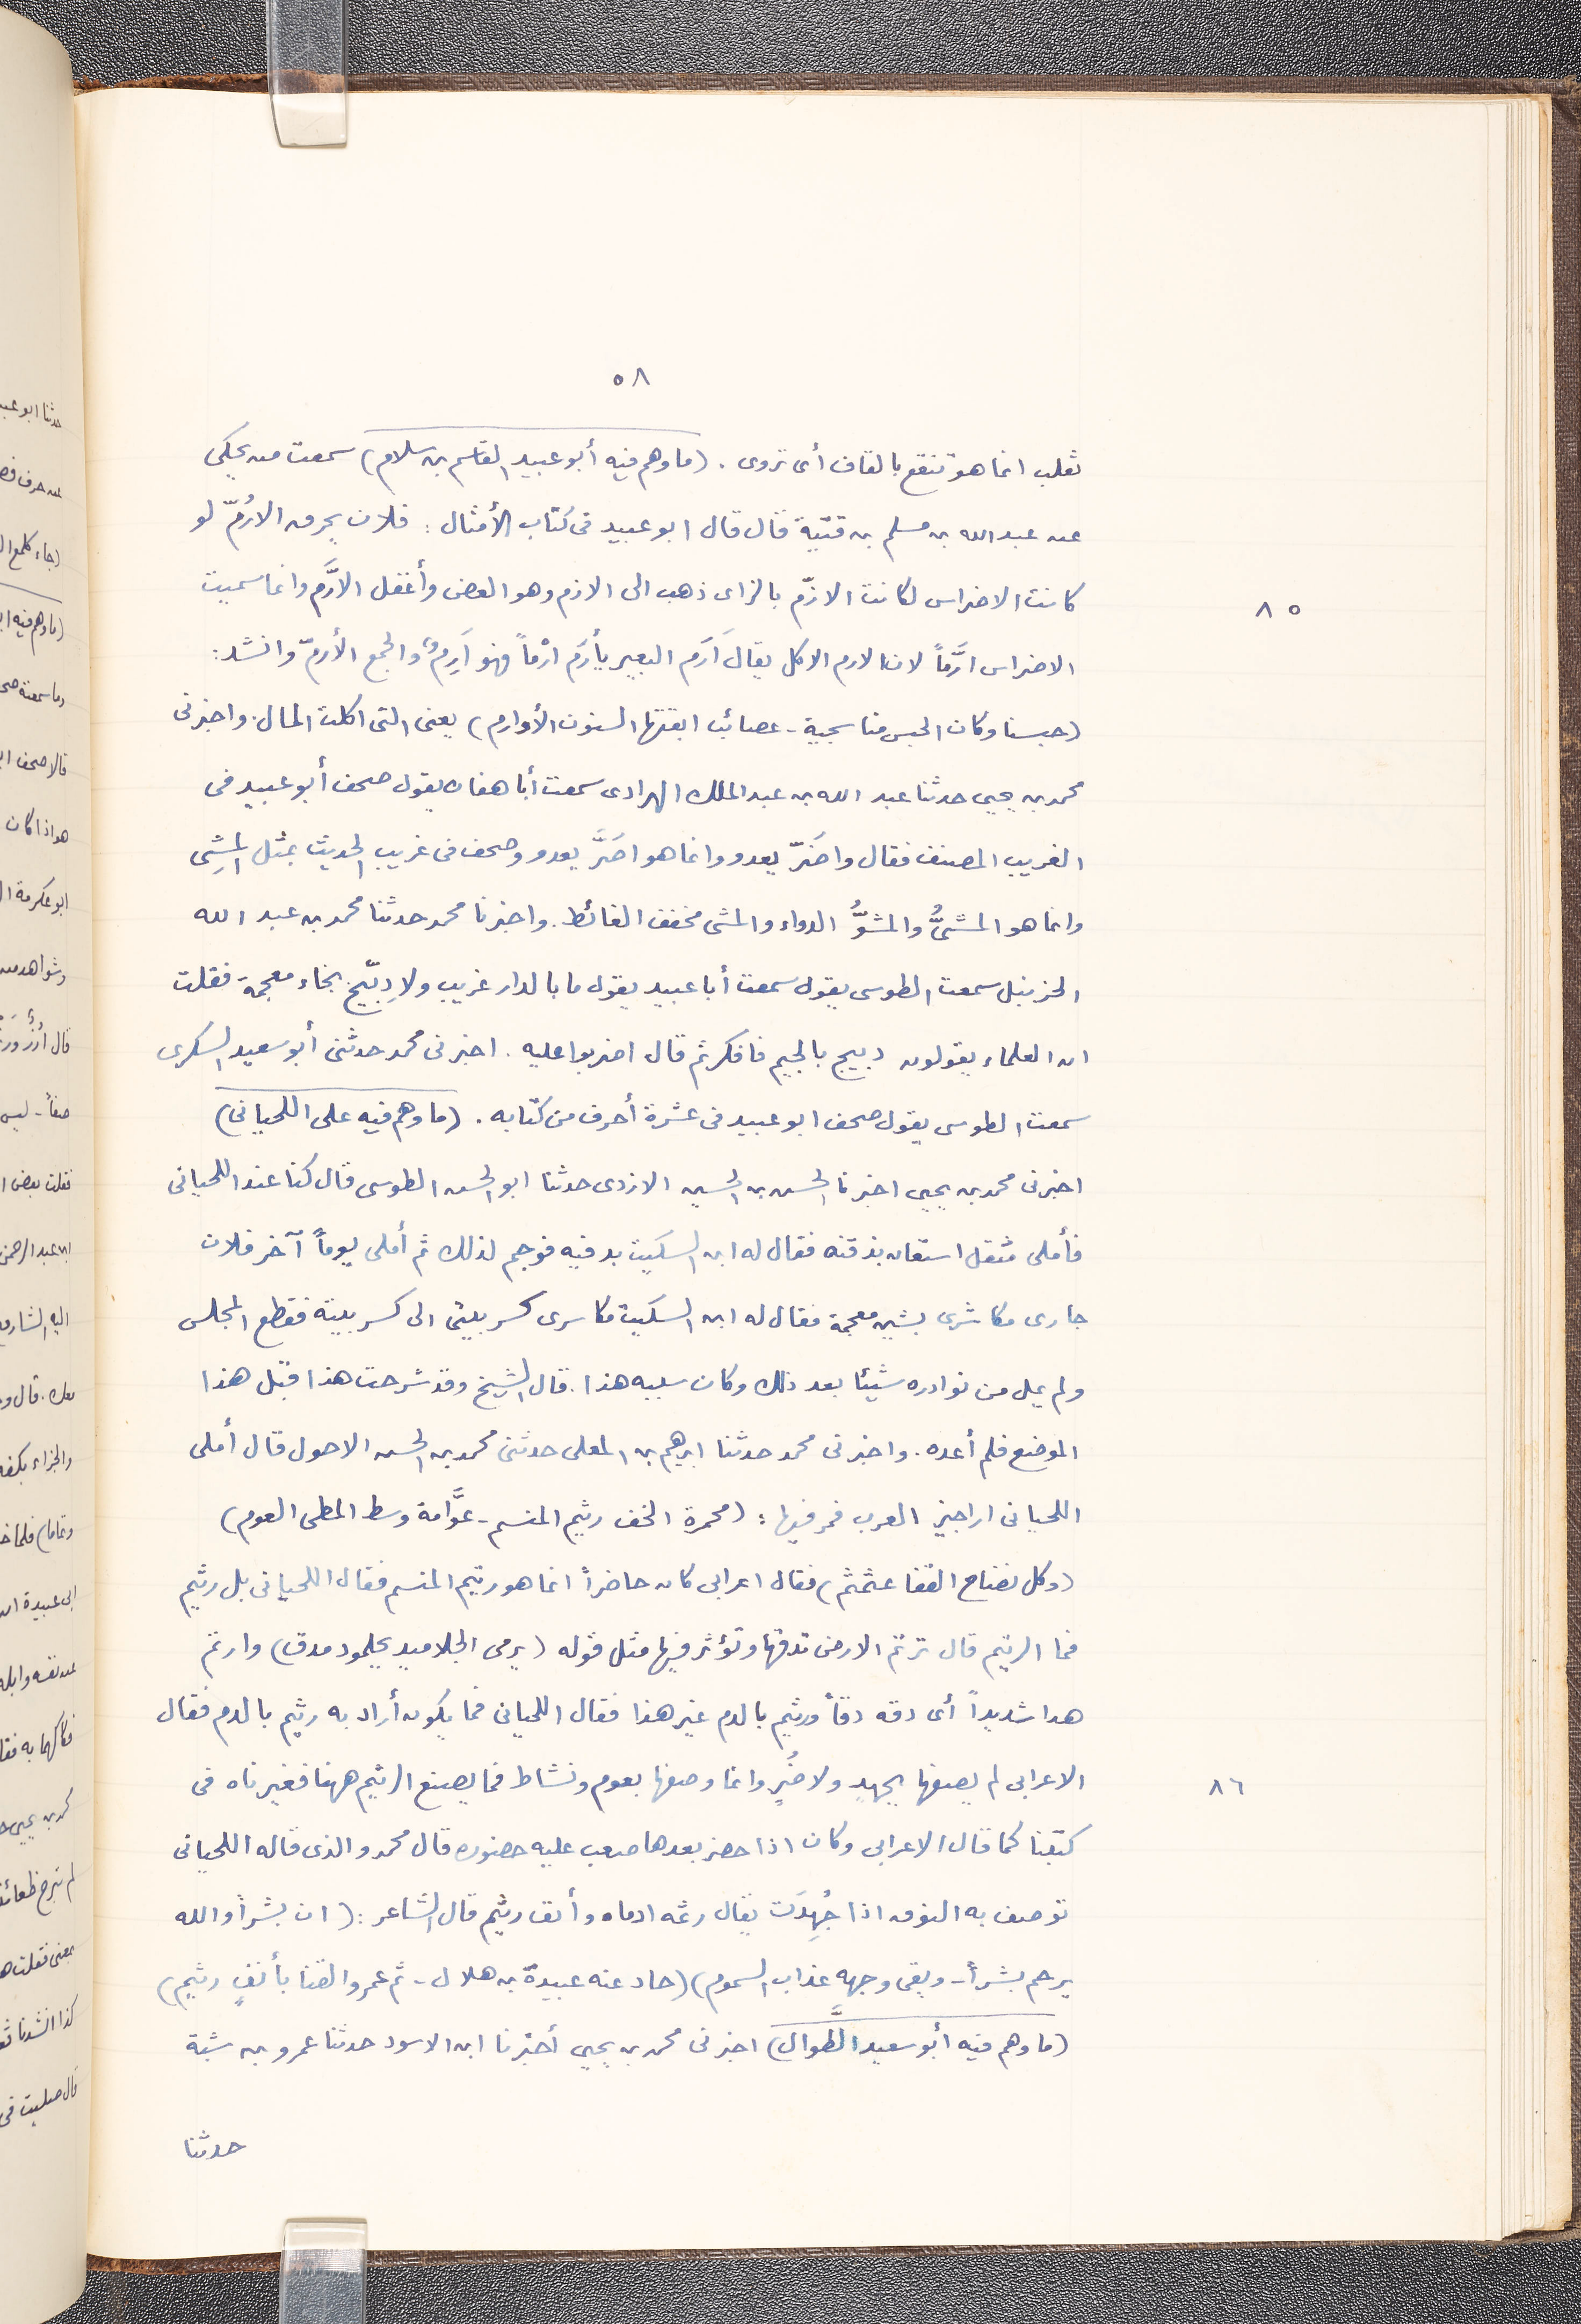 ٥٨
ثعلب انما هو تنقع بالقاف أى تروى . (ما وهم فيه أبو عبيد القاسم بن سلام) سمعت من يحكى
عن عبد الله بن مسلم بن قتيبة قال قال ابو عبيد فى كتاب الأمثال : فلان يحرق الارُمّ لو
كانت الاضراس لكانت الازّم بالزاى ذهب الى الازم وهو العض وأغفل الارَّم وانما سميت
٨٥
الاضراس ارَّماً لان الارم الاكل يقال أَرَم البعير يأرَم ارْماً فهو آرِمٌ والجمع الأرمّ وانشد :
(حبسنا وكان الحبس منا سجية - عصائب ابقتها السنون الأوارم) يعنى التى اكلت المال . واخبرنى
محمد بن يحيى حدثنا عبد الله بن عبد الملك الهرادى سمعت أبا هفان يقول صحف أبو عبيد فى
الغريب المصنف فقال واضَرّ يعدو وانما هو اصَرَّ يعدو وصحف فى غريب الحديث بمثل المشِى
وانما هو المشىُّ والمشوُّ الدواء والمشى مخفف الغائط . واخبرنا محمد حدثنا محمد بن عبد الله
الحزنبل سمعت الطوسى يقول سمعت أبا عبيد يقول ما بالدار غريب ولا دِبّيخ بخاء معجمة فقلت
ان العلماء يقولون دبيج بالجيم فافكر ثم قال اضربوا عليه . اخبرنى محمد حدثنى أبو سعيد السكرى
سمعت الطوسى يقول صحف ابو عبيد فى عشرة أحرف من كتابه . (ما وهم فيه على اللحيانى)
اخبرنى محمد بن يحيى اخبرنا الحسن بن الحسين الازدى حدثنا ابو الحسن الطوسى قال كنا عند اللحيانى
فأملى مثقل استعان بذقنه فقال له ابن السكيت بدفيه فوجم لذلك ثم أملى يوماً آخر فلان
جارى مكاشرى بشين معجمة فقال له ابن السكيت مكاسرى كسر بيتى الى كسر بيته فقطع المجلس
ولم يمل من نوادره شيئا بعد ذلك وكان سببه هذا . قال الشيخ وقد شرحت هذا قبل هذا
الموضع فلم أعده . واخبرنى محمد حدثنا ابرهيم بن المعلى حدثنى محمد بن الحسن الاحول قال أملى
اللحيانى اراجيز العرب فمر فيها : (محمرة الخف رثيم المنسم - عوَّامة وسط المطى العوم)
(وكل نضناح القفا عثمثم) فقال اعرابى كان حاضراً انما هو رتيم المنسم فقال اللحيانى بل رثيم
فما الرتيم قال ترتم الارض تدقها وتؤثر فيها مثل قوله (يرمى الجلاميد بجلمود مدق) وارتم
هدا شديداً أى دقه دقاً ورثيم بالدم غير هذا فقال اللحيانى فما يكون أراد به رثيم بالدم فقال
الاعرابى لم يصفها بجهدٍ ولا ضُرٍ وانما وصفها بعوم ونشاط فما يصنع الرثيم ههنا فغيرناه فى
٨٦
كتبنا كما قال الاعرابى وكان اذا حضر بعدها صعب عليه حضوره قال محمد والذى قاله اللحيانى
توصف به النوق اذا جُهِدَت يقال رثمه ادماه وأنف رثيم قال الشاعر : (ان بشراً والله
يرحم بشراً - وبقى وجهه عذاب السموم) (حاد عنه عبيدة بن هلال - ثم عمرو القنا بأنفٍ رثيم)
(ما وهم فيه أبو سعيد الطَّوال) اخبرنى محمد بن يحيى أخبرنا ابن الاسود حدثنا عمرو بن شبة
حدثنا